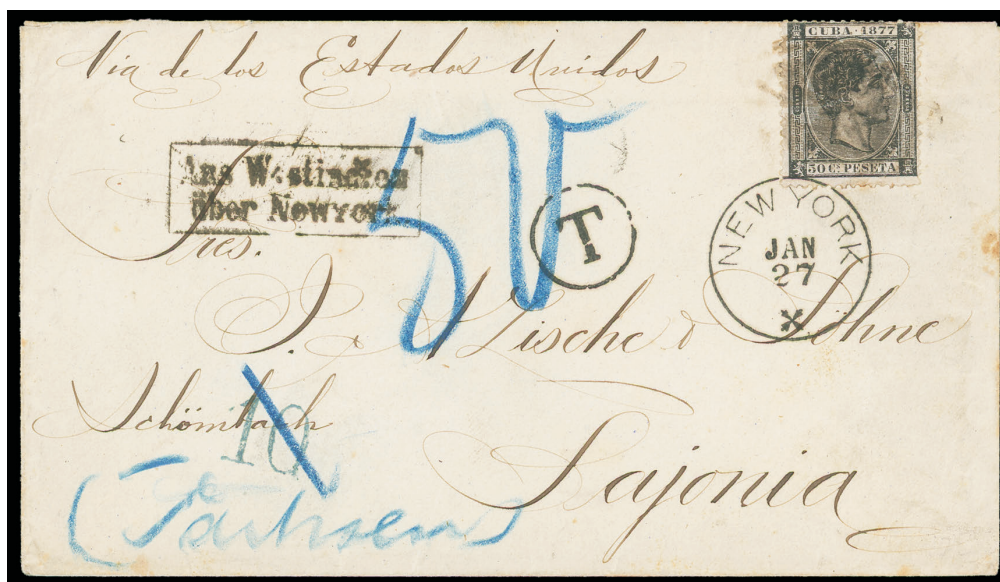 Via de los Estados Unidos
CUBA · 1877
50 Cs. PESETA
Aus Westindien
über Newyork
50
T
NEW YORK
JAN
27
Sres.
J. A Lische & Söhne
Schömbach
10
Sajonia
(Sachsen)